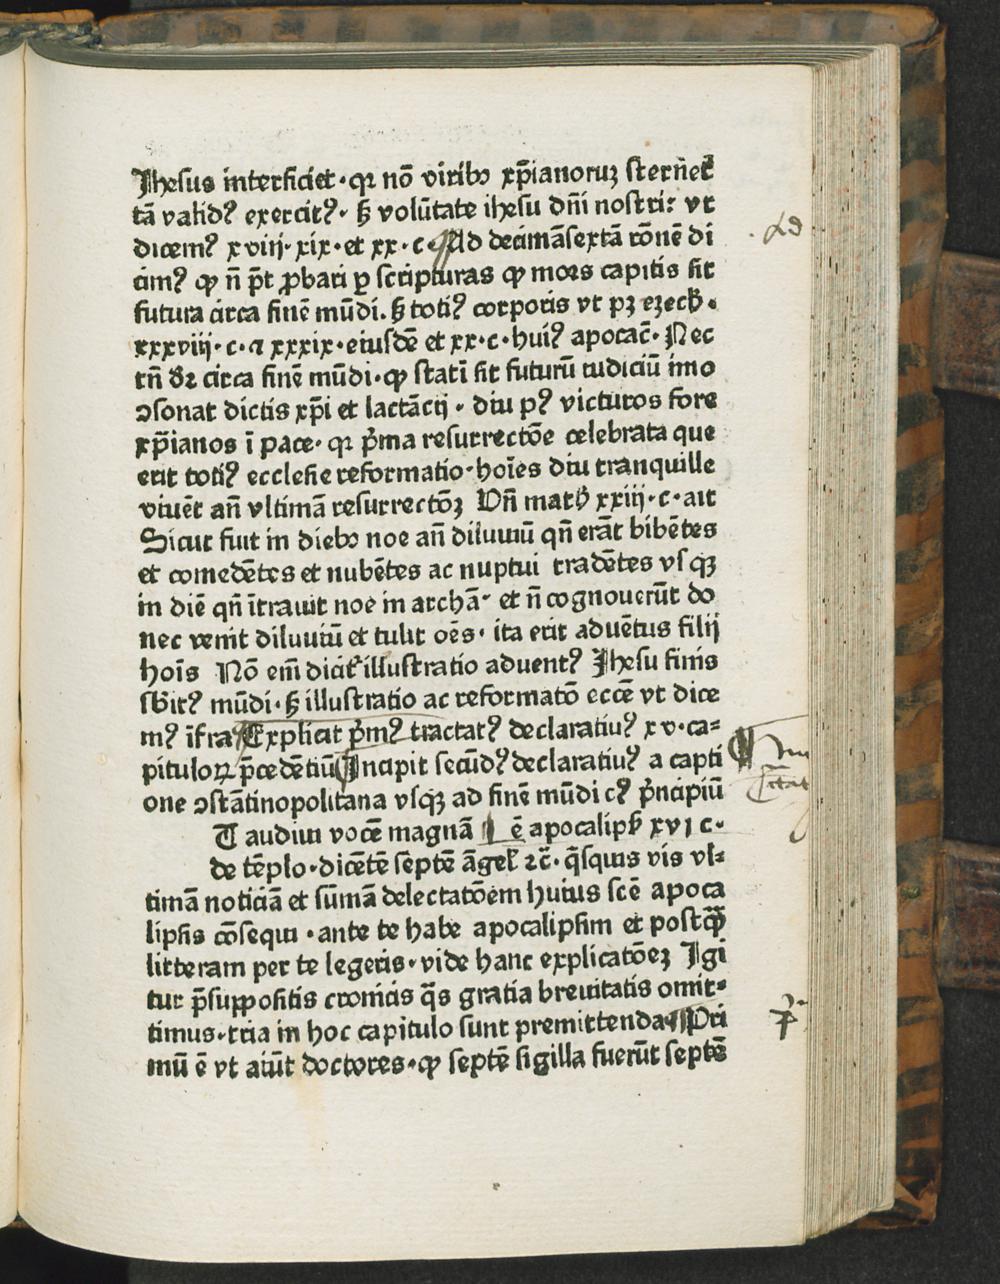 Jhesus interficiet · qꝛ nō viribꝯ xp̄ianoruꝫ sterneᷓt
tā valid⁹ exercit⁹· ẜ volūtate ihesu dn̄i nostri: vt
dicem⁹ xviij· xix· et xx · c · ¶ Ad decimāsextā rōnē di
cim⁹ ꝙ n̄ pt̄ ꝓbari ꝑ scripturas ꝙ mors capitis sit
futura circa finē mūdi. ẜ toti⁹ corporis vt pꝫ eꝫech̄ ·
xxxviij · c · ⁊ xxxix · eiusdē et xx · c · hui⁹ apocac̄ · Nec
tn̄ dꝛ circa finē mūdi · ꝙ stati fit futurū iudiciū imo
ꝯsonat dictis xp̄i et lactācij · diu p⁹ victuros fore
xp̄ianos ī pace · qꝛ p̄ma resurrectōe celebrata que
erit toti⁹ ecclesie reformatio · hoīes diu tranquille
viuēt an̄ vltimā resurrectōꝫ Vn̄ math̄ xxiij · c · ait
Sicut fuit in diebꝯ noe an̄ diluuiū qn̄ erāt bibētes
et comedētes et nubētes ac nuptui tradētes vsqꝫ
in diē qn̄ ītrauit noe in archā · et n̄ cognouerūt do
nec venit diluuiū et tulit oēs · ita erit aduētus filij
hoīs Nō em̄ dicit illustratio aduent⁹ Jhesu finis
sb̄it⁹ mūdi · ẜ illustratio ac reformatō ecce̅ vt dice
m⁹ īfra ¶ Explicit p̄m⁹ tractat⁹ declaratiu⁹ xv · ca=
pituloꝝ p̄cedētiū ¶ Incipit secūd⁹ declaratiu⁹ a capti
one ꝯstātinopolitana vsqꝫ ad finē mūdi c⁹ p̄ncipiū
T audiui vocē magnā ē apocalipsꝭ xvj c ·
de tēplo · dicētē septē āgel̓ ⁊c̄ · q̄squis vis vl=
timā noticiā et sūmā delectatōem huius scē apoca
lipsis cōsequi · ante te habe apocalipsim et postꝙ̄
litteram per te legeris · vide hanc explicatōeꝫ Igi
tur p̄suppositis cronicis q̄s gratia breuitatis omit=
timus · tria in hoc capitulo sunt premittenda ¶ Pri
mū ē vt aiūt doctores · ꝙ septē sigilla fuerūt septē